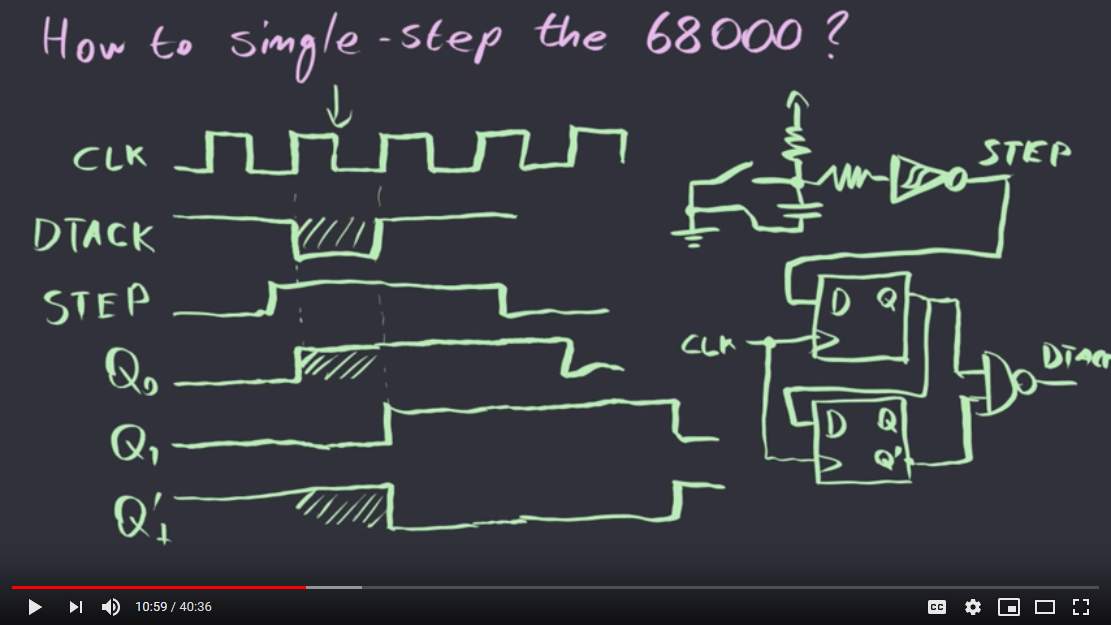 How to single-step the 68000?
CLK
DTACK
STEP
Q0
Q1
Q'1
STEP
D Q
CLK
DTACK
D Q
Q'
10:59 / 40:36
CC